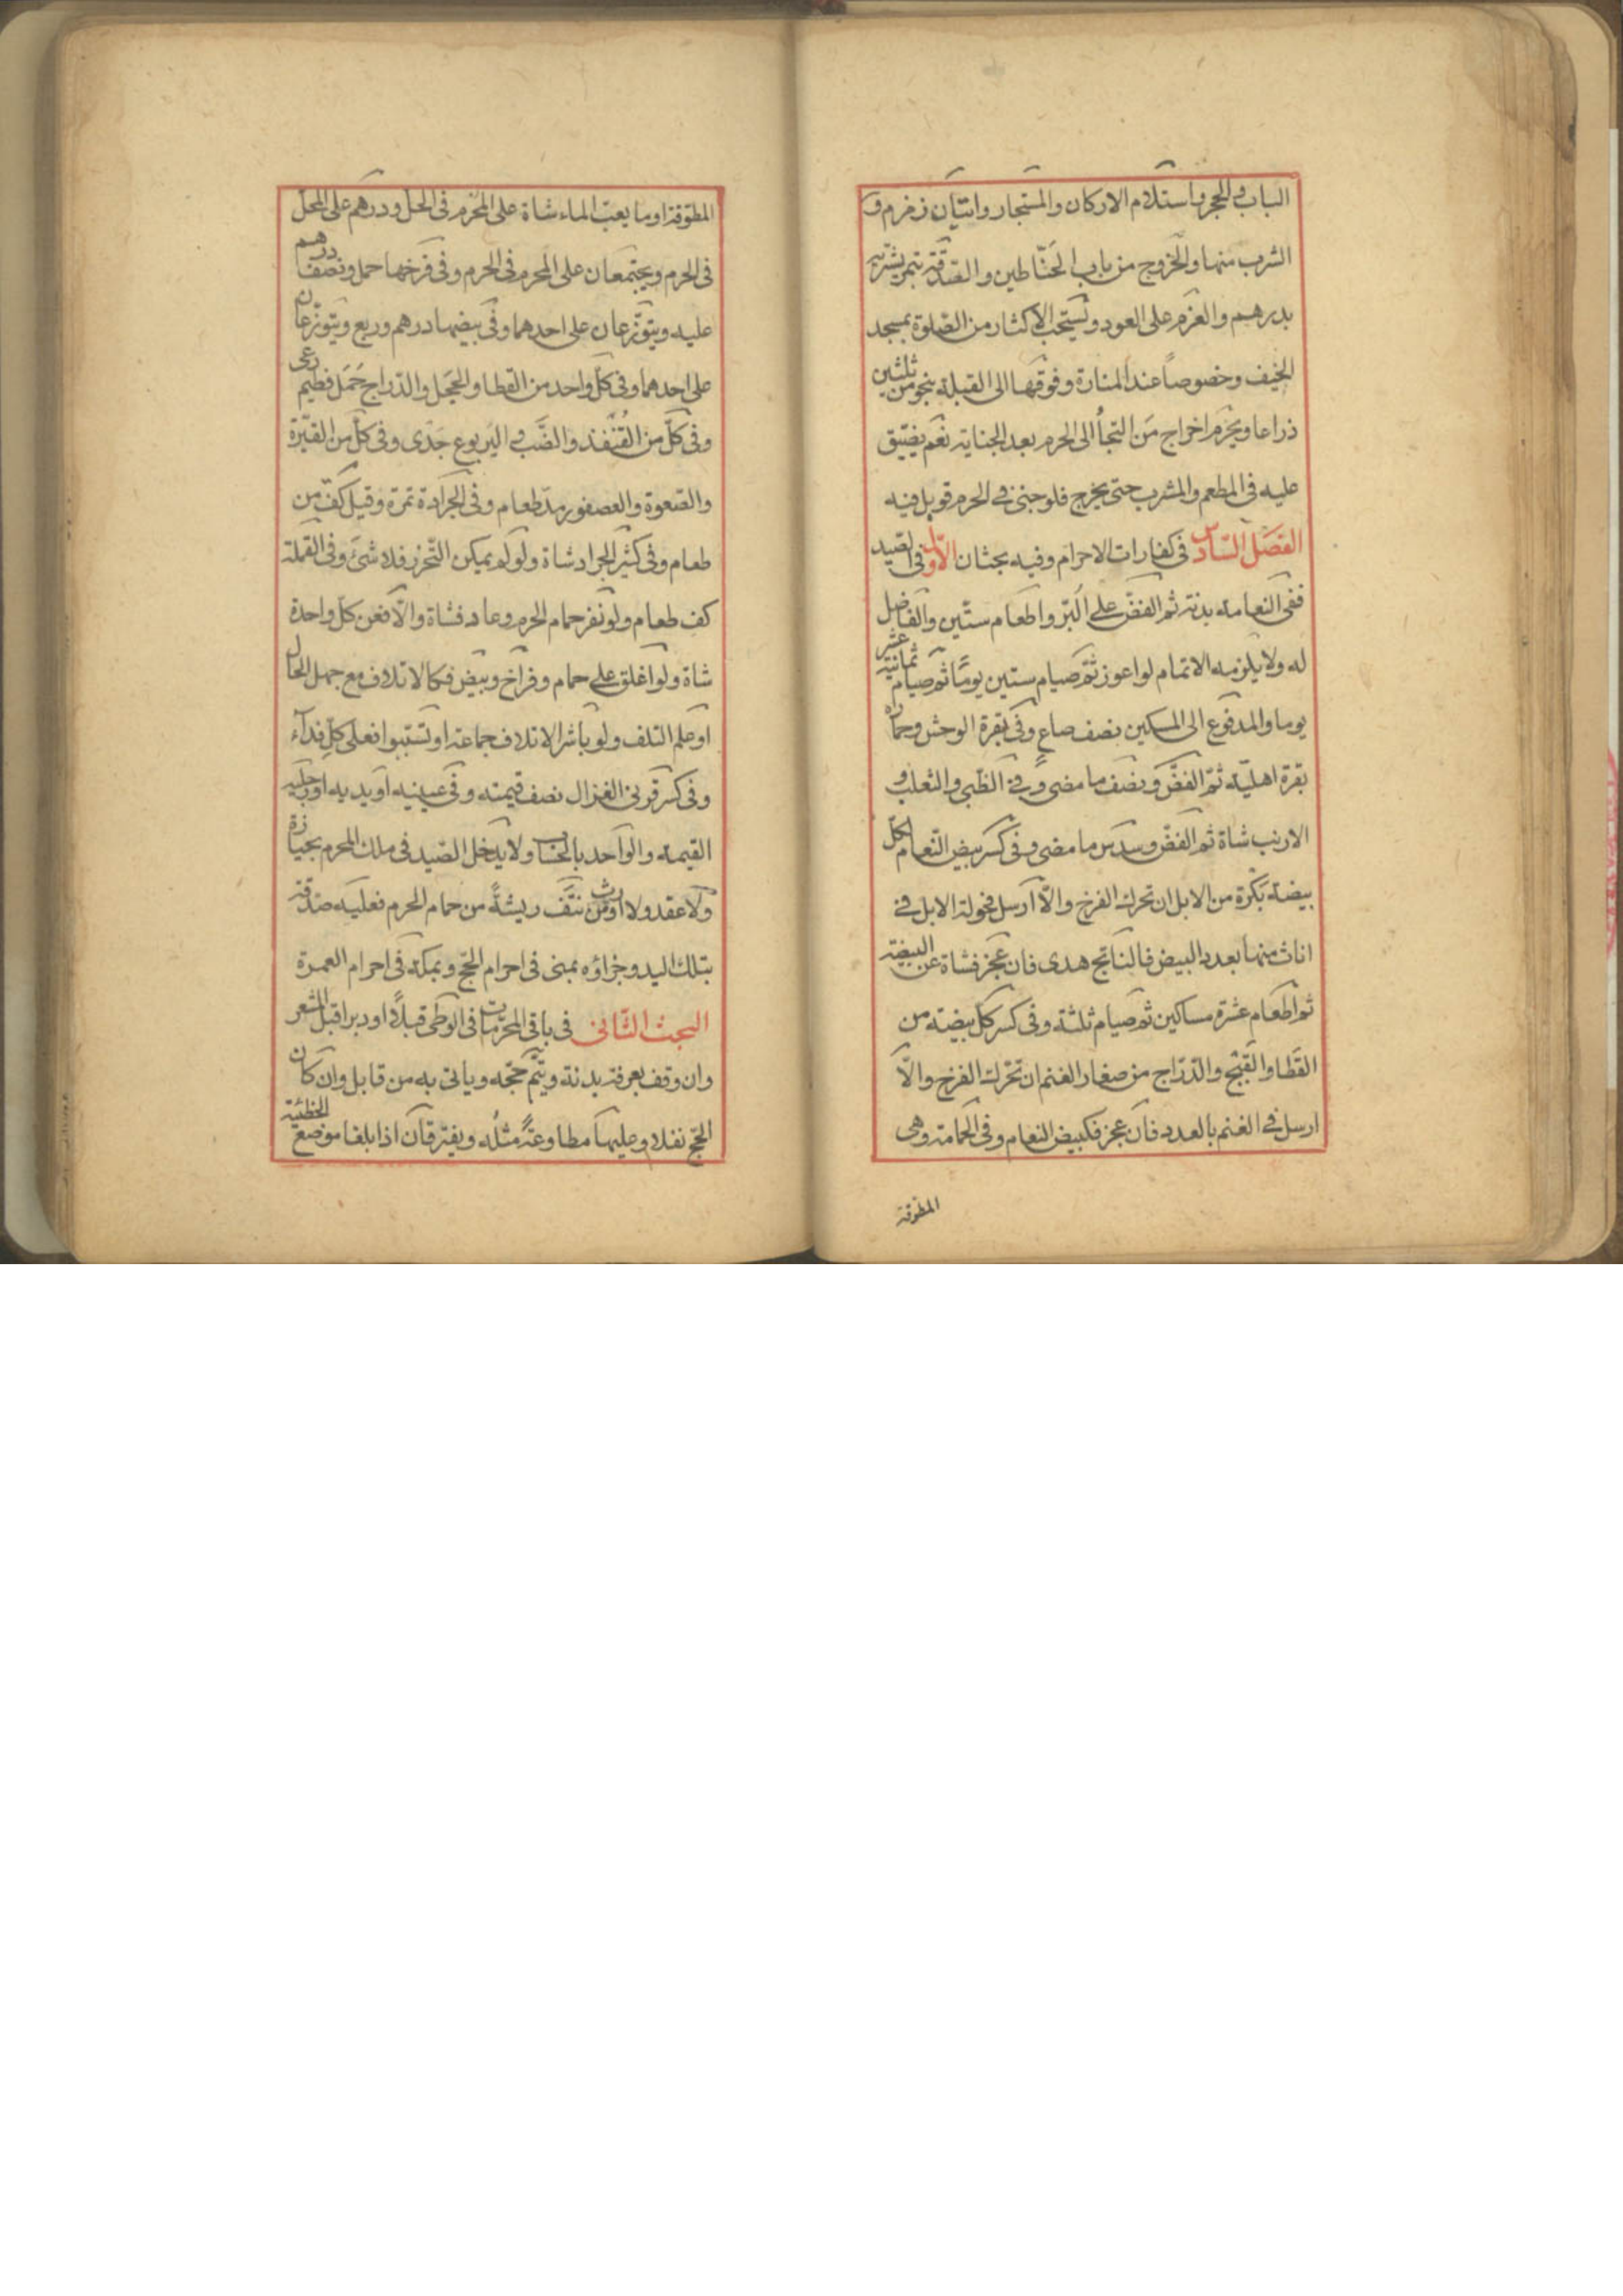 الباب والحجر واستلام الاركان والمستجار واتيان زمزم و
الشرب منها والخروج من باب الحنّاطين والصّدقة بتمر يشتريه
بدرهم والعزم على العود ويستحبّ الاكثار من الصّلوة بمسجد
الخيف وخصوصاً عند المنارة وفوقها الى القبلة بنحو من ثلثين
ذراعا ويحرم اخراج مَن التجأ الى الحرم بعد الجناية نعم يضيّق
عليه في المطعم والمشرب حتى يخرج فلو جنى في الحرم قوبل فيه
الفصل السّادس في كفارات الاحرام وفيه بحثان الاوّل في الصيد
ففى النعامة بدنة ثم الفضّ على البُرّ واطعام ستّين والفاضل
له ولا يلزمه الاتمام لو اعوز ثمّ صيام ستين يومًا ثم صيام ثمانية عشر
يوما والمدفوع الى المسكين نصف صاعٍ وفى بقرة الوحش وحماره
بقرة اهليّة ثمّ الفضّ ونصف ما مضى وفي الظّبي والثعلب و
الارنب شاة ثم الفضّ وسدس ما مضى وفى كسر بيض النّعام لكلّ
بيضة بَكرة من الابل ان تحرك الفرخ والّا ارسل فحولة الابل في
اناث منها بعدد البيض فالناتج هدى فان عجز فشاة عن البيضة
ثم اطعام عشرة مساكين ثم صيام ثلثة وفى كسر كل بيضة من
القَطا والقَبْج والدّرّاج من صغار الغنم ان تحرّك الفرخ والّا
ارسل في الغنم بالعدد فان عجز فكبيض النعام وفى الحمامة وهى
المطوقة
المطوّقة او ما يعبّ الماء شاة على المحرم فى الحلّ ودرهم على المحلّ
فى الحرم ويجتمعان على المحرم فى الحرم وفى فرخها حمل ونصف درهم
عليه ويتوزّعان على احدهما وفى بيضها درهم وربع ويتوزّعان
على احدهما وفى كلّ واحد من القطا والحجَل والدّراج حَمَل فطيم رعى
وفى كلّ من القُنْفذ والضّبّ واليَربوع جَدْى وفى كلّ من القبّرة
والصّعوة والعصفور مدّ طعام وفى الجَرادة تمرة وقيل كفّ من
طعام وفى كثير الجراد شاة ولو لم يمكن التّحرز فلا شئ وفى القملة
كف طعام ولو نفر حمام الحرم وعاد فشاة والّا فعن كلّ واحدة
شاة ولو اغلق على حمام وفراخ وبيض فكالاتلاف مع جهل الحال
او علم التلف ولو باشر الاتلاف جماعة او تسبّبوا فعلى كلّ فداء
وفى كسر قرنى الغزال نصف قيمته وفى عينيه او يديه او رجليه
القيمة والواحد بالحساب ولا يدخل الصّيد فى ملك المحرم بحيازة
ولا عقد ولا ارث ومن نتف ريشةً من حمام الحرم فعليه صدقة
بتلك اليد وجزاؤه بمنى فى احرام الحجّ وبمكة فى احرام العمرة
البحث الثّانى فى باقى المحرّمات فى الوطى قبلاً او دبرا قبل المشعر
وان وقف بعرفة بدنة ويتمّ حجّه وياتى به من قابل وان كان
الحجّ نفلا وعليها مطاوعةً مثلُه ويفترقان اذا بلغا موضع الخطيئة